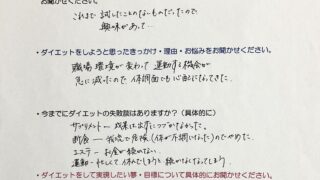 お聞かせください。
これまで試したことのないものだったので、
興味があって…
・ダイエットをしようと思ったきっかけ・理由・お悩みをお聞かせください。
職場環境が変わって運動する機会が
急に減ったので体調面も心配になってきた。
・今までにダイエットの失敗談はありますか？（具体的に）
サプリメント―成果は出ずにつづかなかった。
断食―我慢で危険（体が不調になった）のでやめた。
エステ―お金が続かない。
運動―忙しくて体れたりすると続かなくなってしまう。
・ダイエットをして実現したい夢・目標について具体的にお聞かせください。